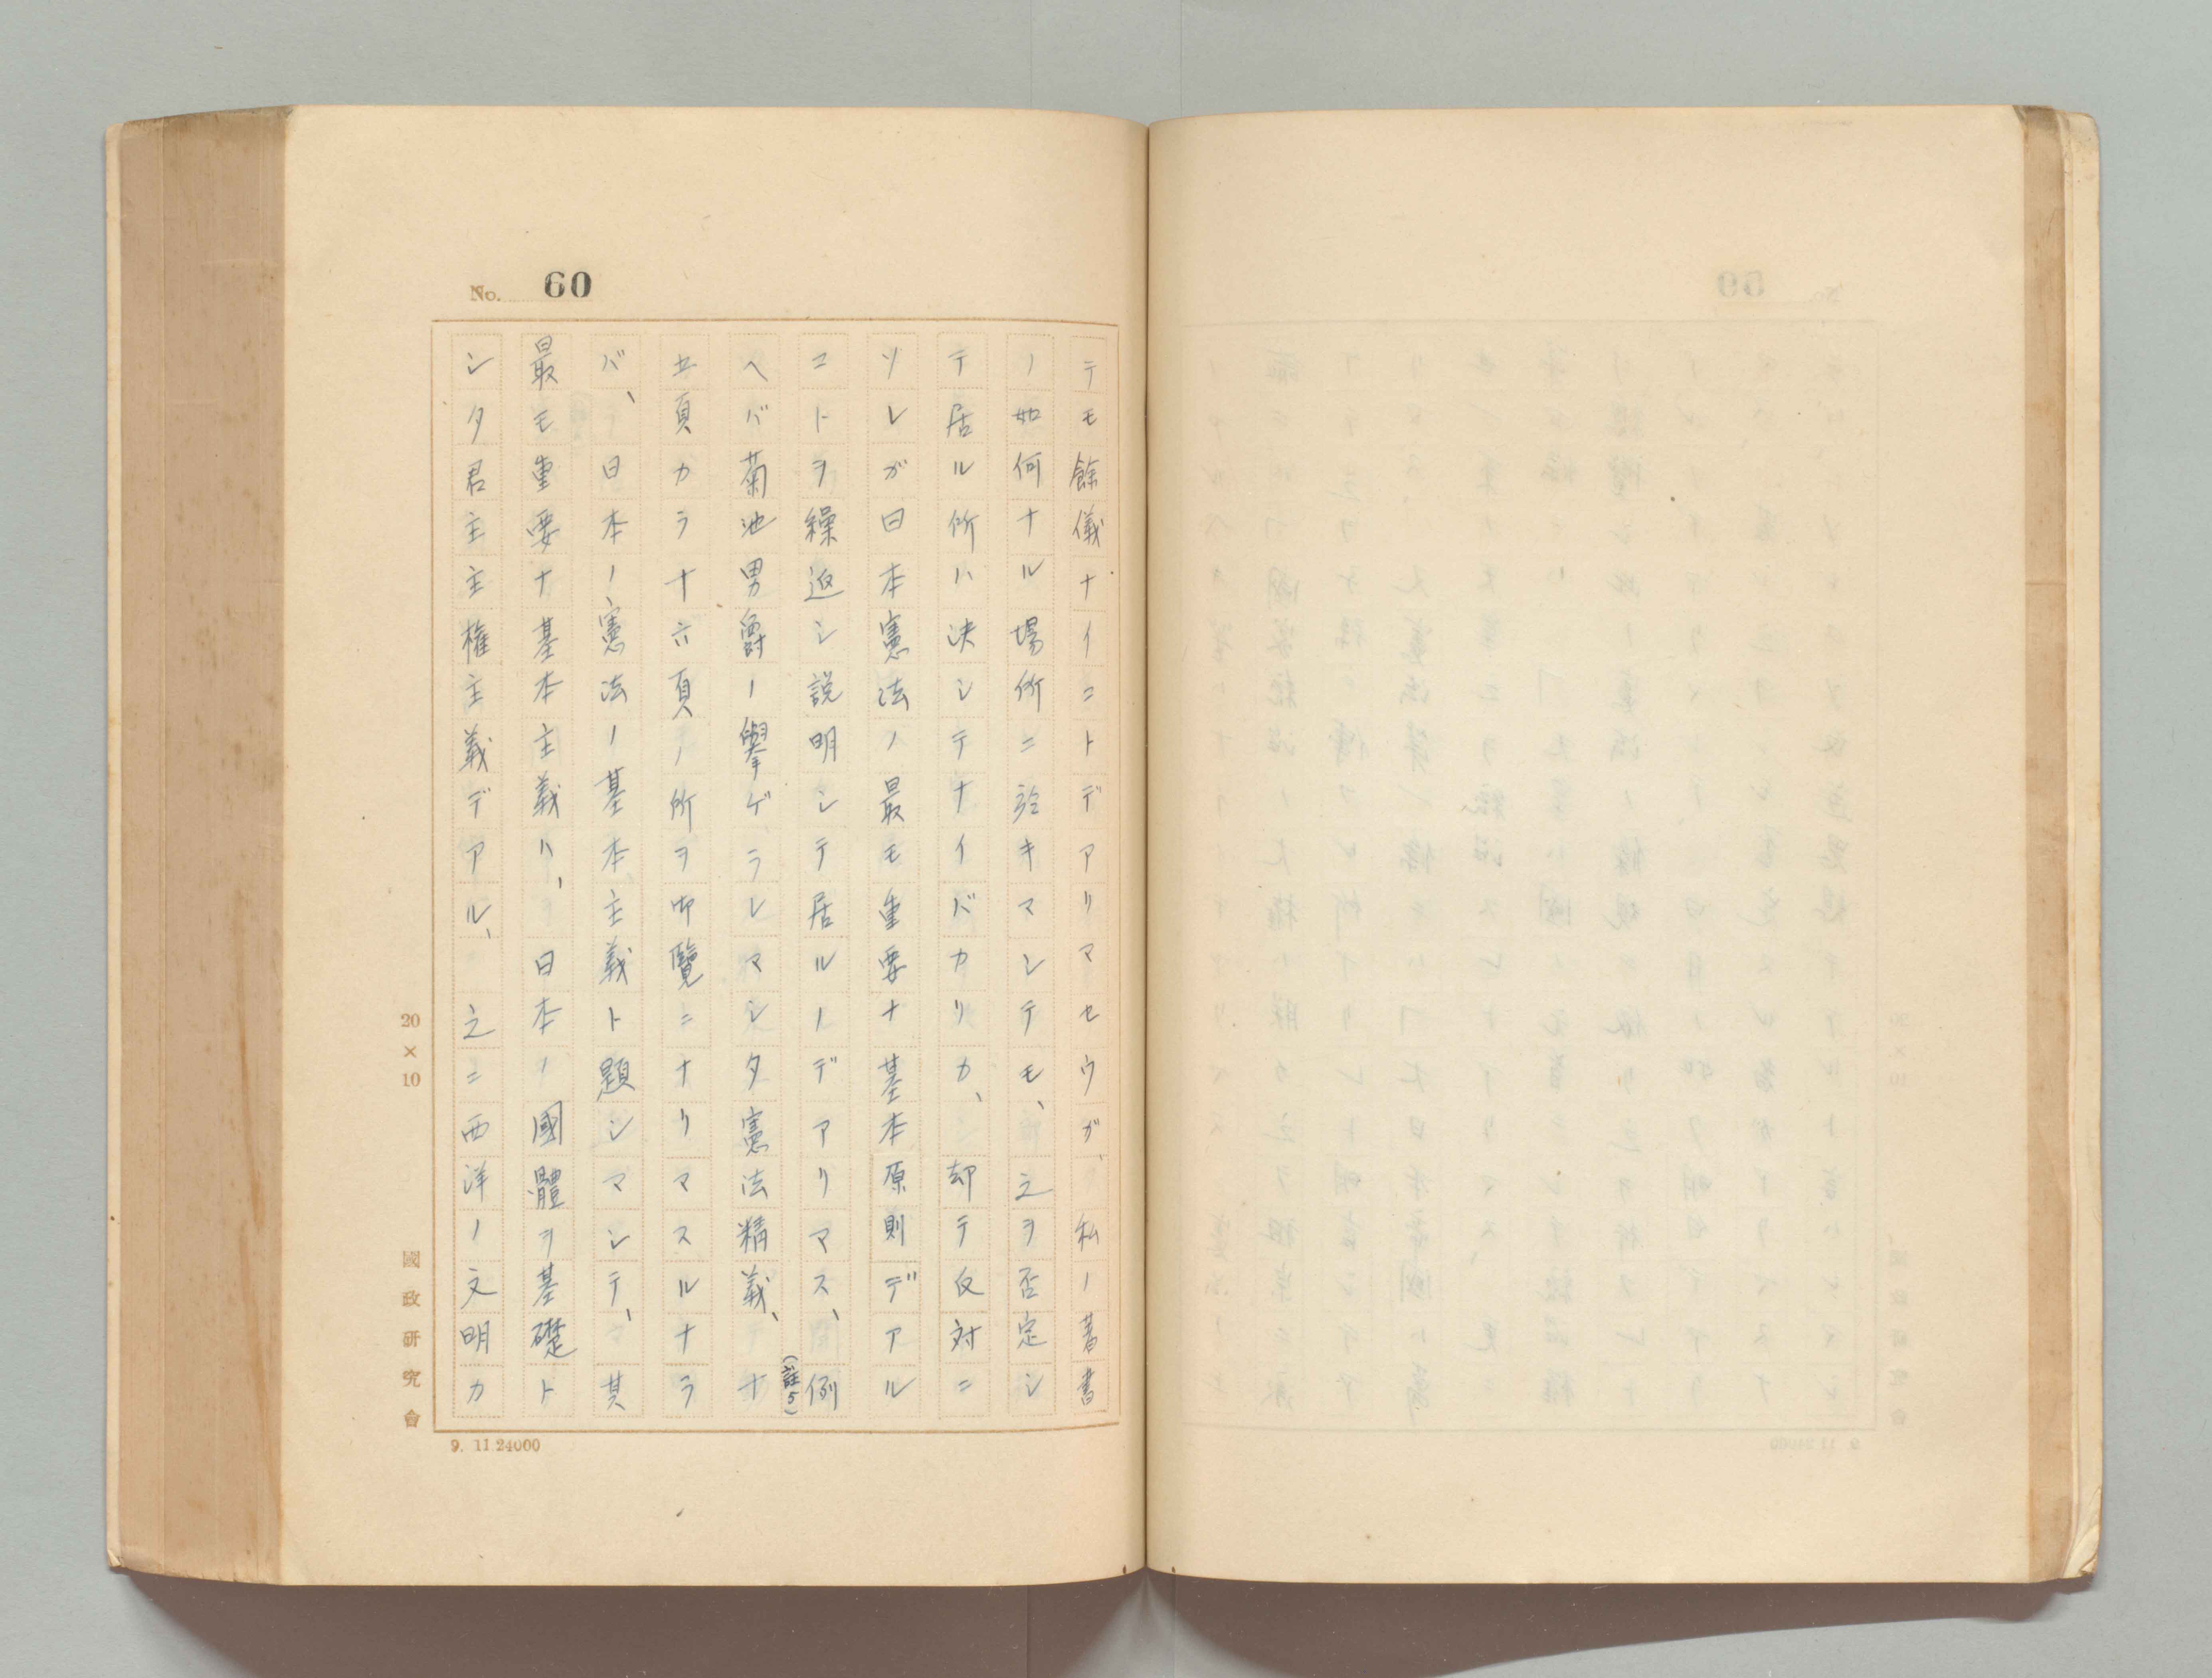 No. 60
テモ餘儀ナイコトデアリマセウガ、私ノ著書
ノ如何ナル場所ニ於キマシテモ、之ヲ否定シ
テ居ル所ハ決シテナイバカリカ、却テ反対ニ
ソレガ日本憲法ノ最モ重要ナ基本原則デアル
コトヲ繰返シ説明シテ居ルノデアリマス、例
(註5)
ヘバ菊池男爵ノ擧ゲラレマシタ憲法精義、十
五頁カラ十六頁ノ所ヲ御覽ニナリマスルナラ
バ、日本ノ憲法ノ基本主義ト題シマシテ、其
最モ重要ナ基本主義ハ、日本ノ國體ヲ基礎ト
シタ君主主権主義デアル、之ニ西洋ノ文明カ
20×10
國政研究會
9. 11.24000